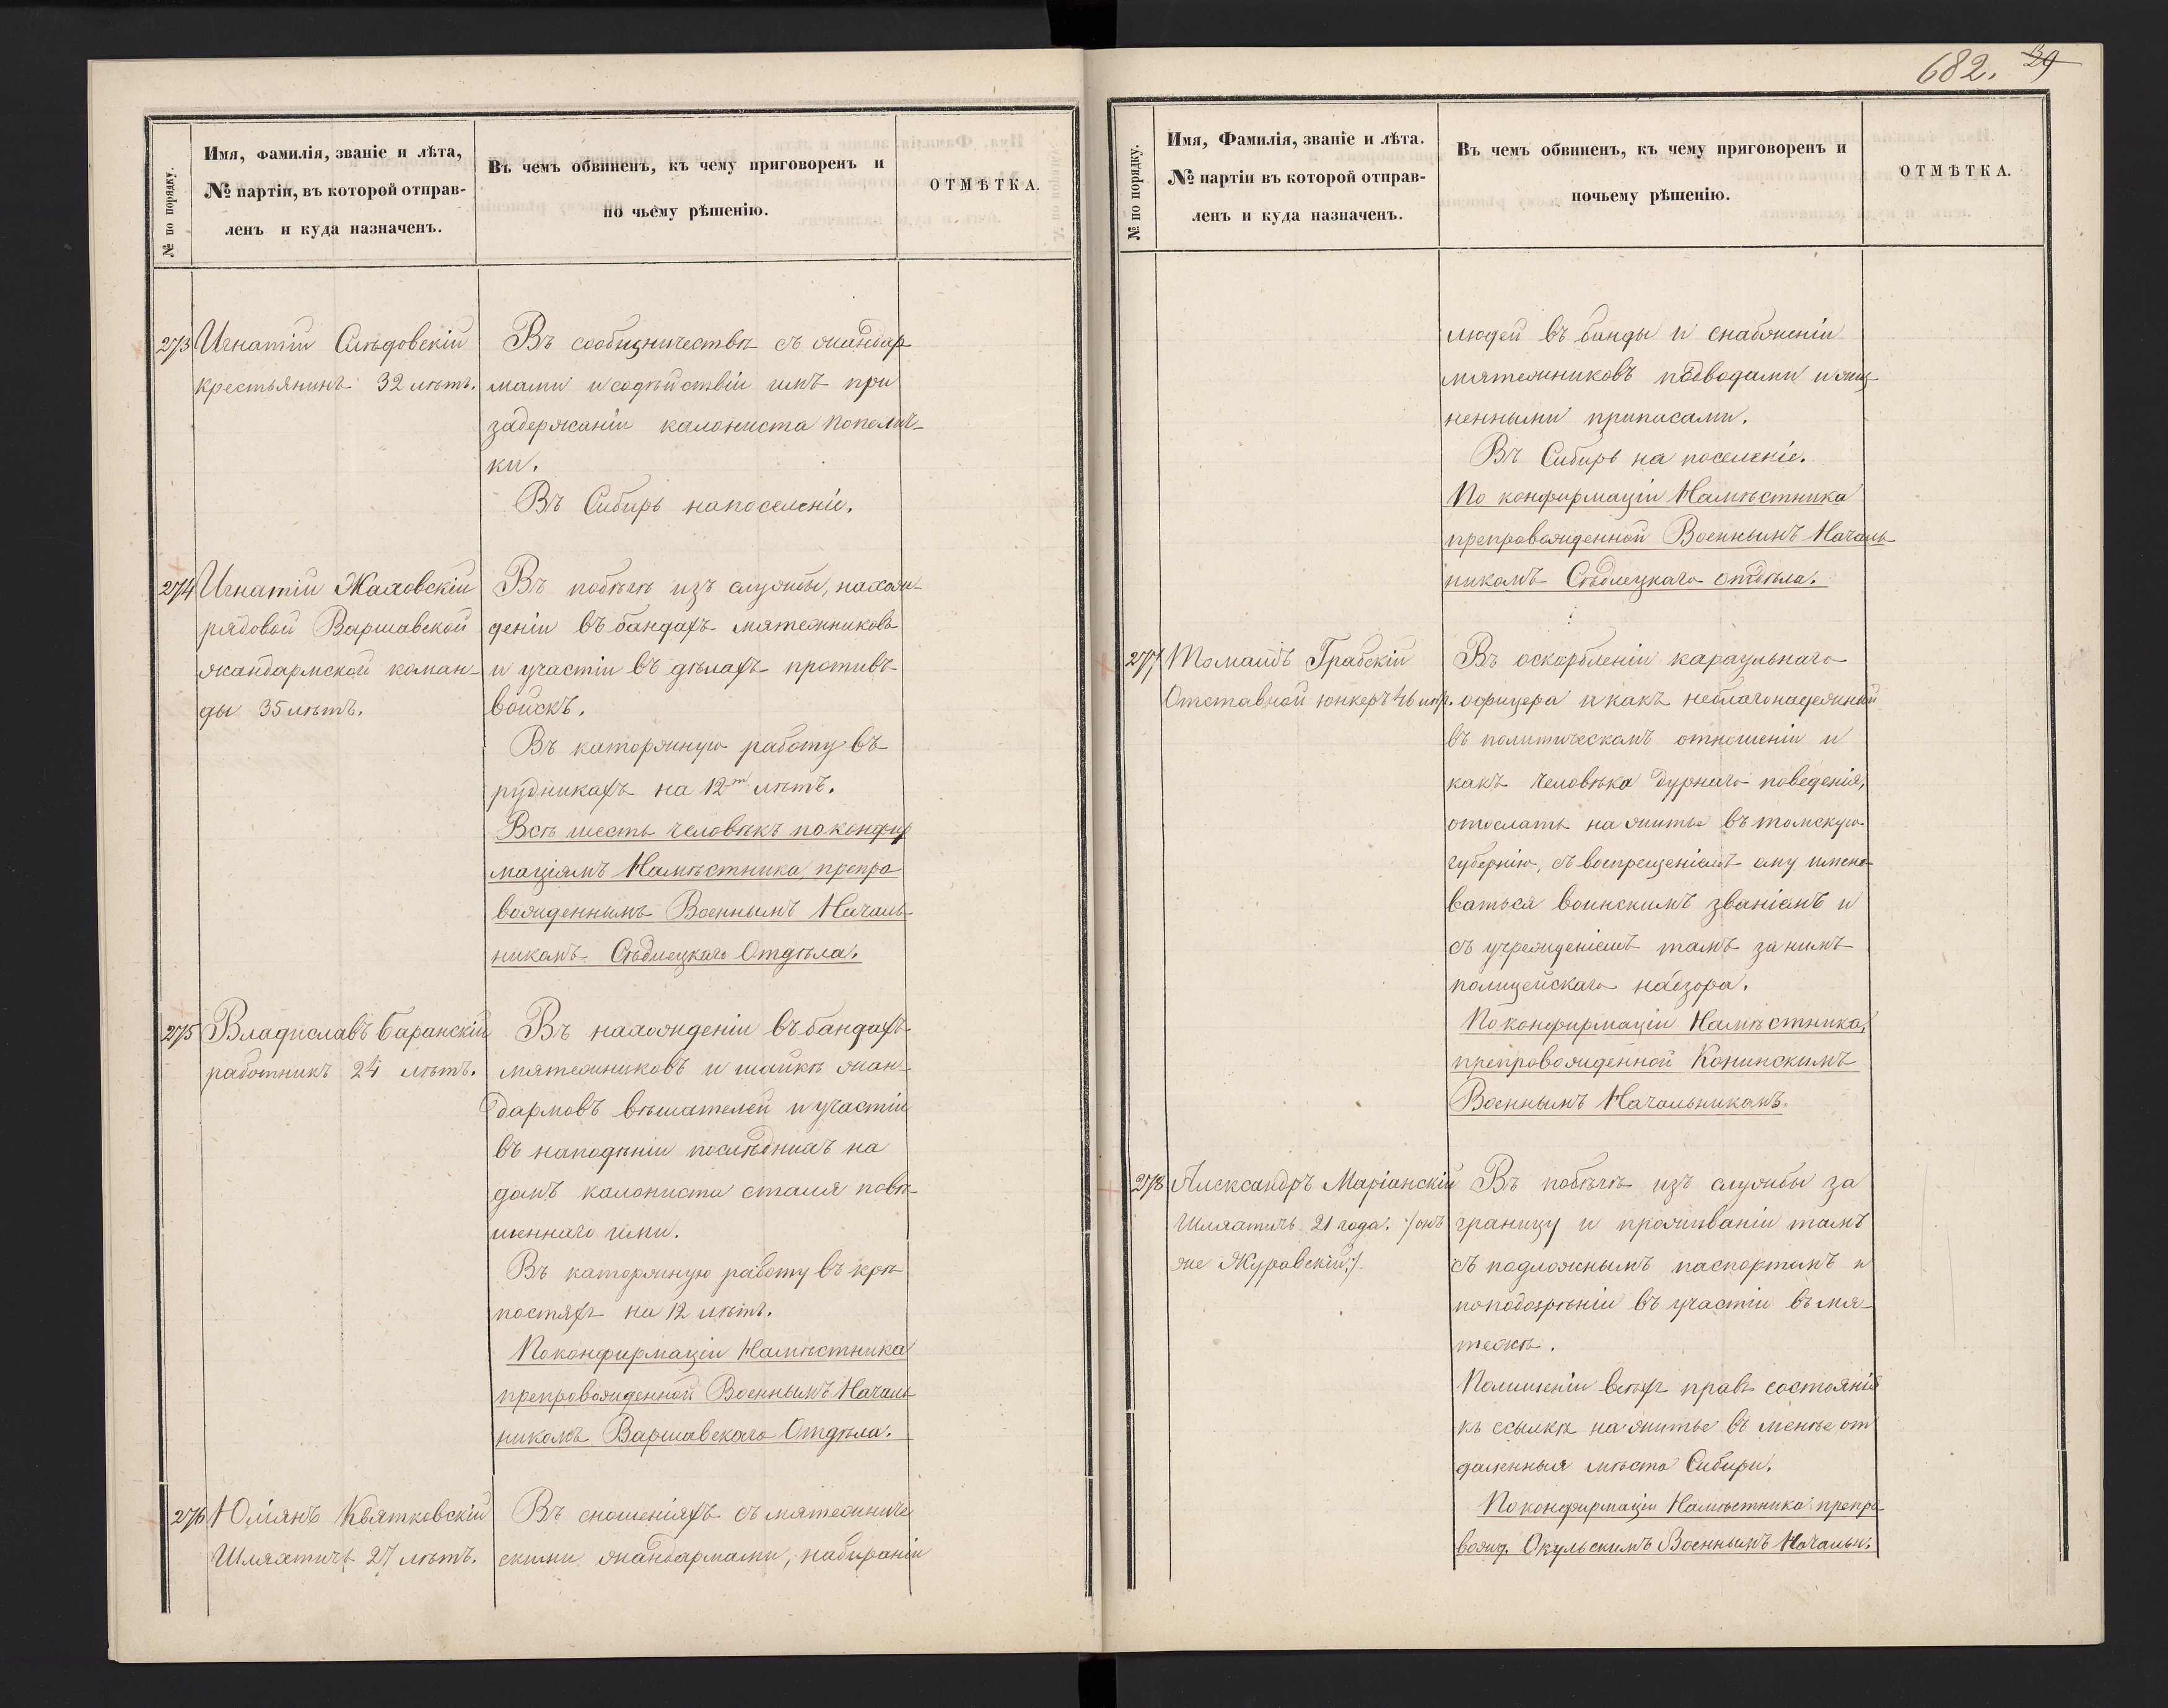 682. 29
№ по порядку.
Имя, Фамилія, званіе и лѣта,
№ партіи, въ которой отправ-
ленъ и куда назначенъ.
Въ чемъ обвиненъ, къ чему приговоренъ и
по чьему рѣшенію.
ОТМѢТКА.
273 Игнатій Слѣдовскій
крестьянинъ 32 лѣтъ.
Въ сообщничествѣ съ жандар
мами и содѣйствіи имъ при
задержаніи калониста Попелич-
ки.
Въ Сибирь на поселеніе.
274 Игнатій Жаховскій
рядовой Варшавской
жандармской коман-
ды 35 лѣтъ.
Въ побѣгѣ изъ службы, нахож-
деніи въ бандахъ мятежниковъ
и участіи въ дѣлахъ противъ
войскъ.
Въ каторжную работу въ
рудникахъ на 12ть лѣтъ.
Всѣ шесть человѣкъ по конфир
маціямъ Намѣстника, препро
вожденнымъ Военнымъ Началь-
никомъ Сѣдлецкаго Отдѣла.
275 Владиславъ Баранскій
работникъ 24 лѣтъ.
Въ нахожденіи въ бандахъ
мятежниковъ и шайкѣ жан-
дармовъ вѣшателей и участіи
въ нападѣніи послѣднихъ на
домъ калониста Сталя повѣ-
шеннаго ими.
Въ каторжную работу въ крѣ-
постяхъ на 12 лѣтъ.
По конфирмаціи Намѣстника
препровожденной Военнымъ Началь
никомъ Варшавскаго Отдѣла.
276 Юліянъ Квятковскій
Шляхтичъ 27 лѣтъ.
Въ сношеніяхъ съ мятежниче
скими жандармами, набираніи
№ по порядку.
Имя, Фамилія, званіе и лѣта.
№ партіи въ которой отправ-
ленъ и куда назначенъ.
Въ чемъ обвиненъ, къ чему приговоренъ и
почьему рѣшенію.
ОТМѢТКА.
людей въ банды и снабженіи
мятежниковъ подводами и жиз-
ненными припасами.
Въ Сибирь на поселеніе.
По конфирмаціи Намѣстника
препровожденной Военнымъ Началь
никомъ Сѣдлецкаго отдѣла.
277 Томашъ Грабскій
Отставной юнкеръ 46 лѣтъ.
Въ оскорбленіи караульнаго
офицера и какъ неблагонадежный
въ политическомъ отношеніи и
какъ человѣка дурнаго поведенія,
отослать на житье въ томскую
губернію, съ воспрещеніемъ ему имено
ваться воинскимъ званіемъ и
съ учрежденіемъ тамъ за нимъ
полицейскаго надзора.
По конфирмаціи Намѣстника,
препровожденной Конинскимъ
Военнымъ Начальникомъ.
278 Александръ Маріанскій
Шляхтичъ 21 года. /: онъ
же Журовскій :/.
Въ побѣгѣ изъ службы за
границу и проживаніи тамъ
съ подложнымъ паспортомъ и
по подозрѣніи въ участіи въ мя-
тежѣ.
По лишеніи всѣхъ правъ состоянія
къ ссылкѣ на житье въ менѣе от
даленныя мѣста Сибири.
По конфирмаціи Намѣстника препро
вожд. Окульскимъ Военнымъ Начальн.